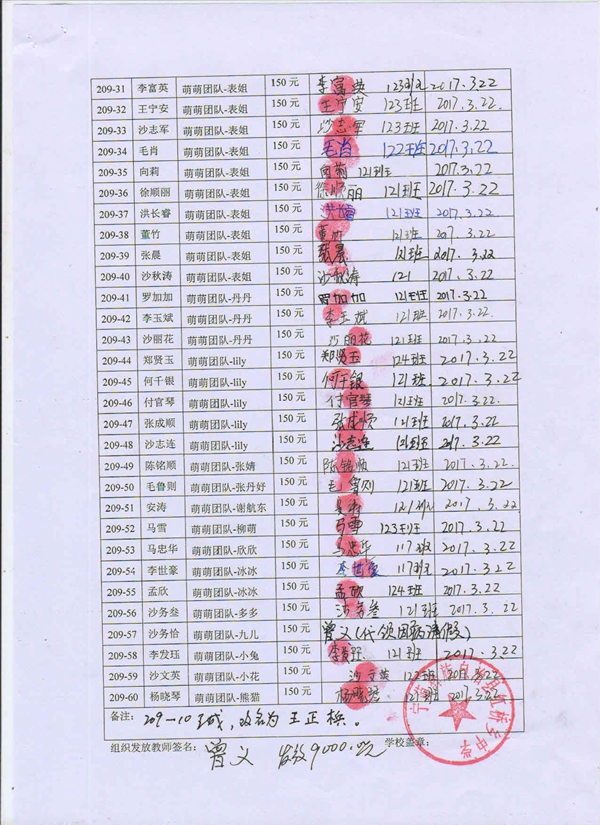 209-31 李富英 萌萌团队-表姐 150元 李富英 123班 2017.3.22
209-32 王宁安 萌萌团队-表姐 150元 王宁安 123班 2017.3.22
209-33 沙志军 萌萌团队-表姐 150元 沙志军 123班 2017.3.22
209-34 毛肖 萌萌团队-表姐 150元 毛肖 122班 2017.3.22
209-35 向莉 萌萌团队-表姐 150元 向莉 121班 2017.3.22
209-36 徐顺丽 萌萌团队-表姐 150元 徐顺丽 121班 2017.3.22
209-37 洪长睿 萌萌团队-表姐 150元 洪长睿 121班 2017.3.22
209-38 董竹 萌萌团队-表姐 150元 董竹 121班 2017.3.22
209-39 张晨 萌萌团队-表姐 150元 张晨 121班 2017.3.22
209-40 沙秋涛 萌萌团队-表姐 150元 沙秋涛 121 2017.3.22
209-41 罗加加 萌萌团队-丹丹 150元 罗加加 121班 2017.3.22
209-42 李玉斌 萌萌团队-丹丹 150元 李玉斌 121班 2017.3.22
209-43 沙丽花 萌萌团队-丹丹 150元 沙丽花 121班 2017.3.22
209-44 郑贤玉 萌萌团队-lily 150元 郑贤玉 124班 2017.3.22
209-45 何千银 萌萌团队-lily 150元 何千银 121班 2017.3.22
209-46 付官琴 萌萌团队-lily 150元 付官琴 121班 2017.3.22
209-47 张成顺 萌萌团队-lily 150元 张成顺 121班 2017.3.22
209-48 沙志连 萌萌团队-lily 150元 沙志连 121班 2017.3.22
209-49 陈铭顺 萌萌团队-张婧 150元 陈铭顺 121班 2017.3.22
209-50 毛鲁则 萌萌团队-张丹好 150元 毛鲁则 121班 2017.3.22
209-51 安涛 萌萌团队-谢航东 150元 安涛 121班 2017.3.22
209-52 马雪 萌萌团队-柳萌 150元 马雪 123班 2017.3.22
209-53 马忠华 萌萌团队-欣欣 150元 马忠华 117班 2017.3.22
209-54 李世豪 萌萌团队-冰冰 150元 李世豪 117班 2017.3.22
209-55 孟欣 萌萌团队-冰冰 150元 孟欣 124班 2017.3.22
209-56 沙务叁 萌萌团队-多多 150元 沙务叁 121班 2017.3.22
209-57 沙务恰 萌萌团队-九儿 150元 曾义(代领因病请假)
209-58 李发珏 萌萌团队-小兔 150元 李发珏 121班 2017.3.22
209-59 沙文英 萌萌团队-小花 150元 沙文英 122班 2017.3.22
209-60 杨晓琴 萌萌团队-熊猫 150元 杨晓琴 121班 2017.3.22
备注: 209-10 王成,改名为王正栋。
组织发放教师签名: 曾义 发放9000.元 学校盖章: